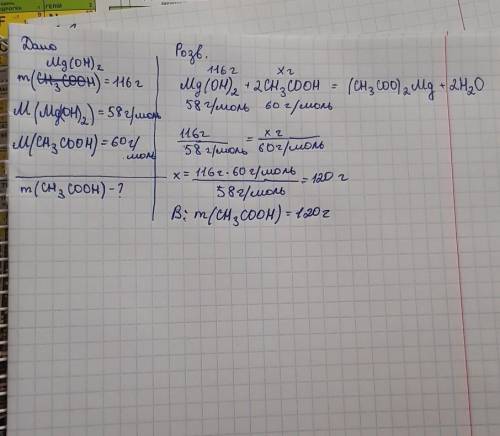 Дано
Mg(OH)₂
m(CH₃COOH) = 116г
M(Mg(OH)₂) = 58 г/моль
M(CH₃COOH) = 60 г/
моль
m(CH₃COOH) - ?
Розв.
116г xг
Mg(OH)₂ + 2CH₃COOH = (CH₃COO)₂Mg + 2H₂O
58 г/моль 60 г/моль
116г/58 г/моль = xг/60 г/моль
x = 116г · 60 г/моль/58 г/моль = 120 г
В: m(CH₃COOH) = 120г